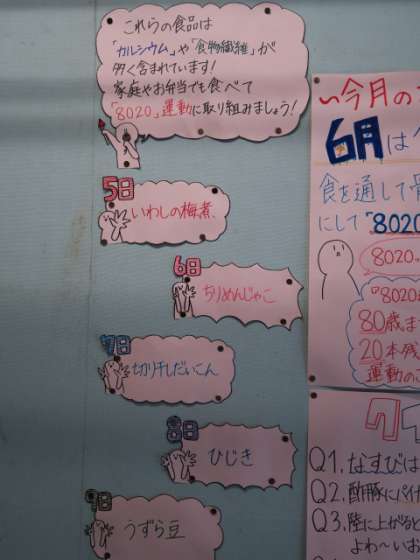 これらの食品は
「カルシウム」や「食物繊維」が
多く含まれています！
家庭やお弁当でも食べて
「8020」運動に取り組みましょう！
5日
いわしの梅煮
6日
ちりめんじゃこ
7日
切り干しだいこん
8日
ひじき
9日
うずら豆
今月の
6月は
食を通して
にして「8020
8020
「8020
80歳ま
20本残
運動の
Q1.なすびは
Q2.酢豚にパイ
Q3.陸に上がると
よわ〜いお